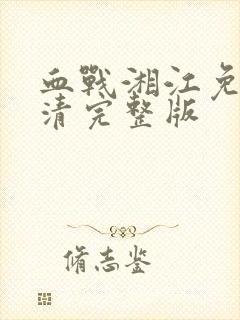 血戰湘江免
清完整版
脩志鉴